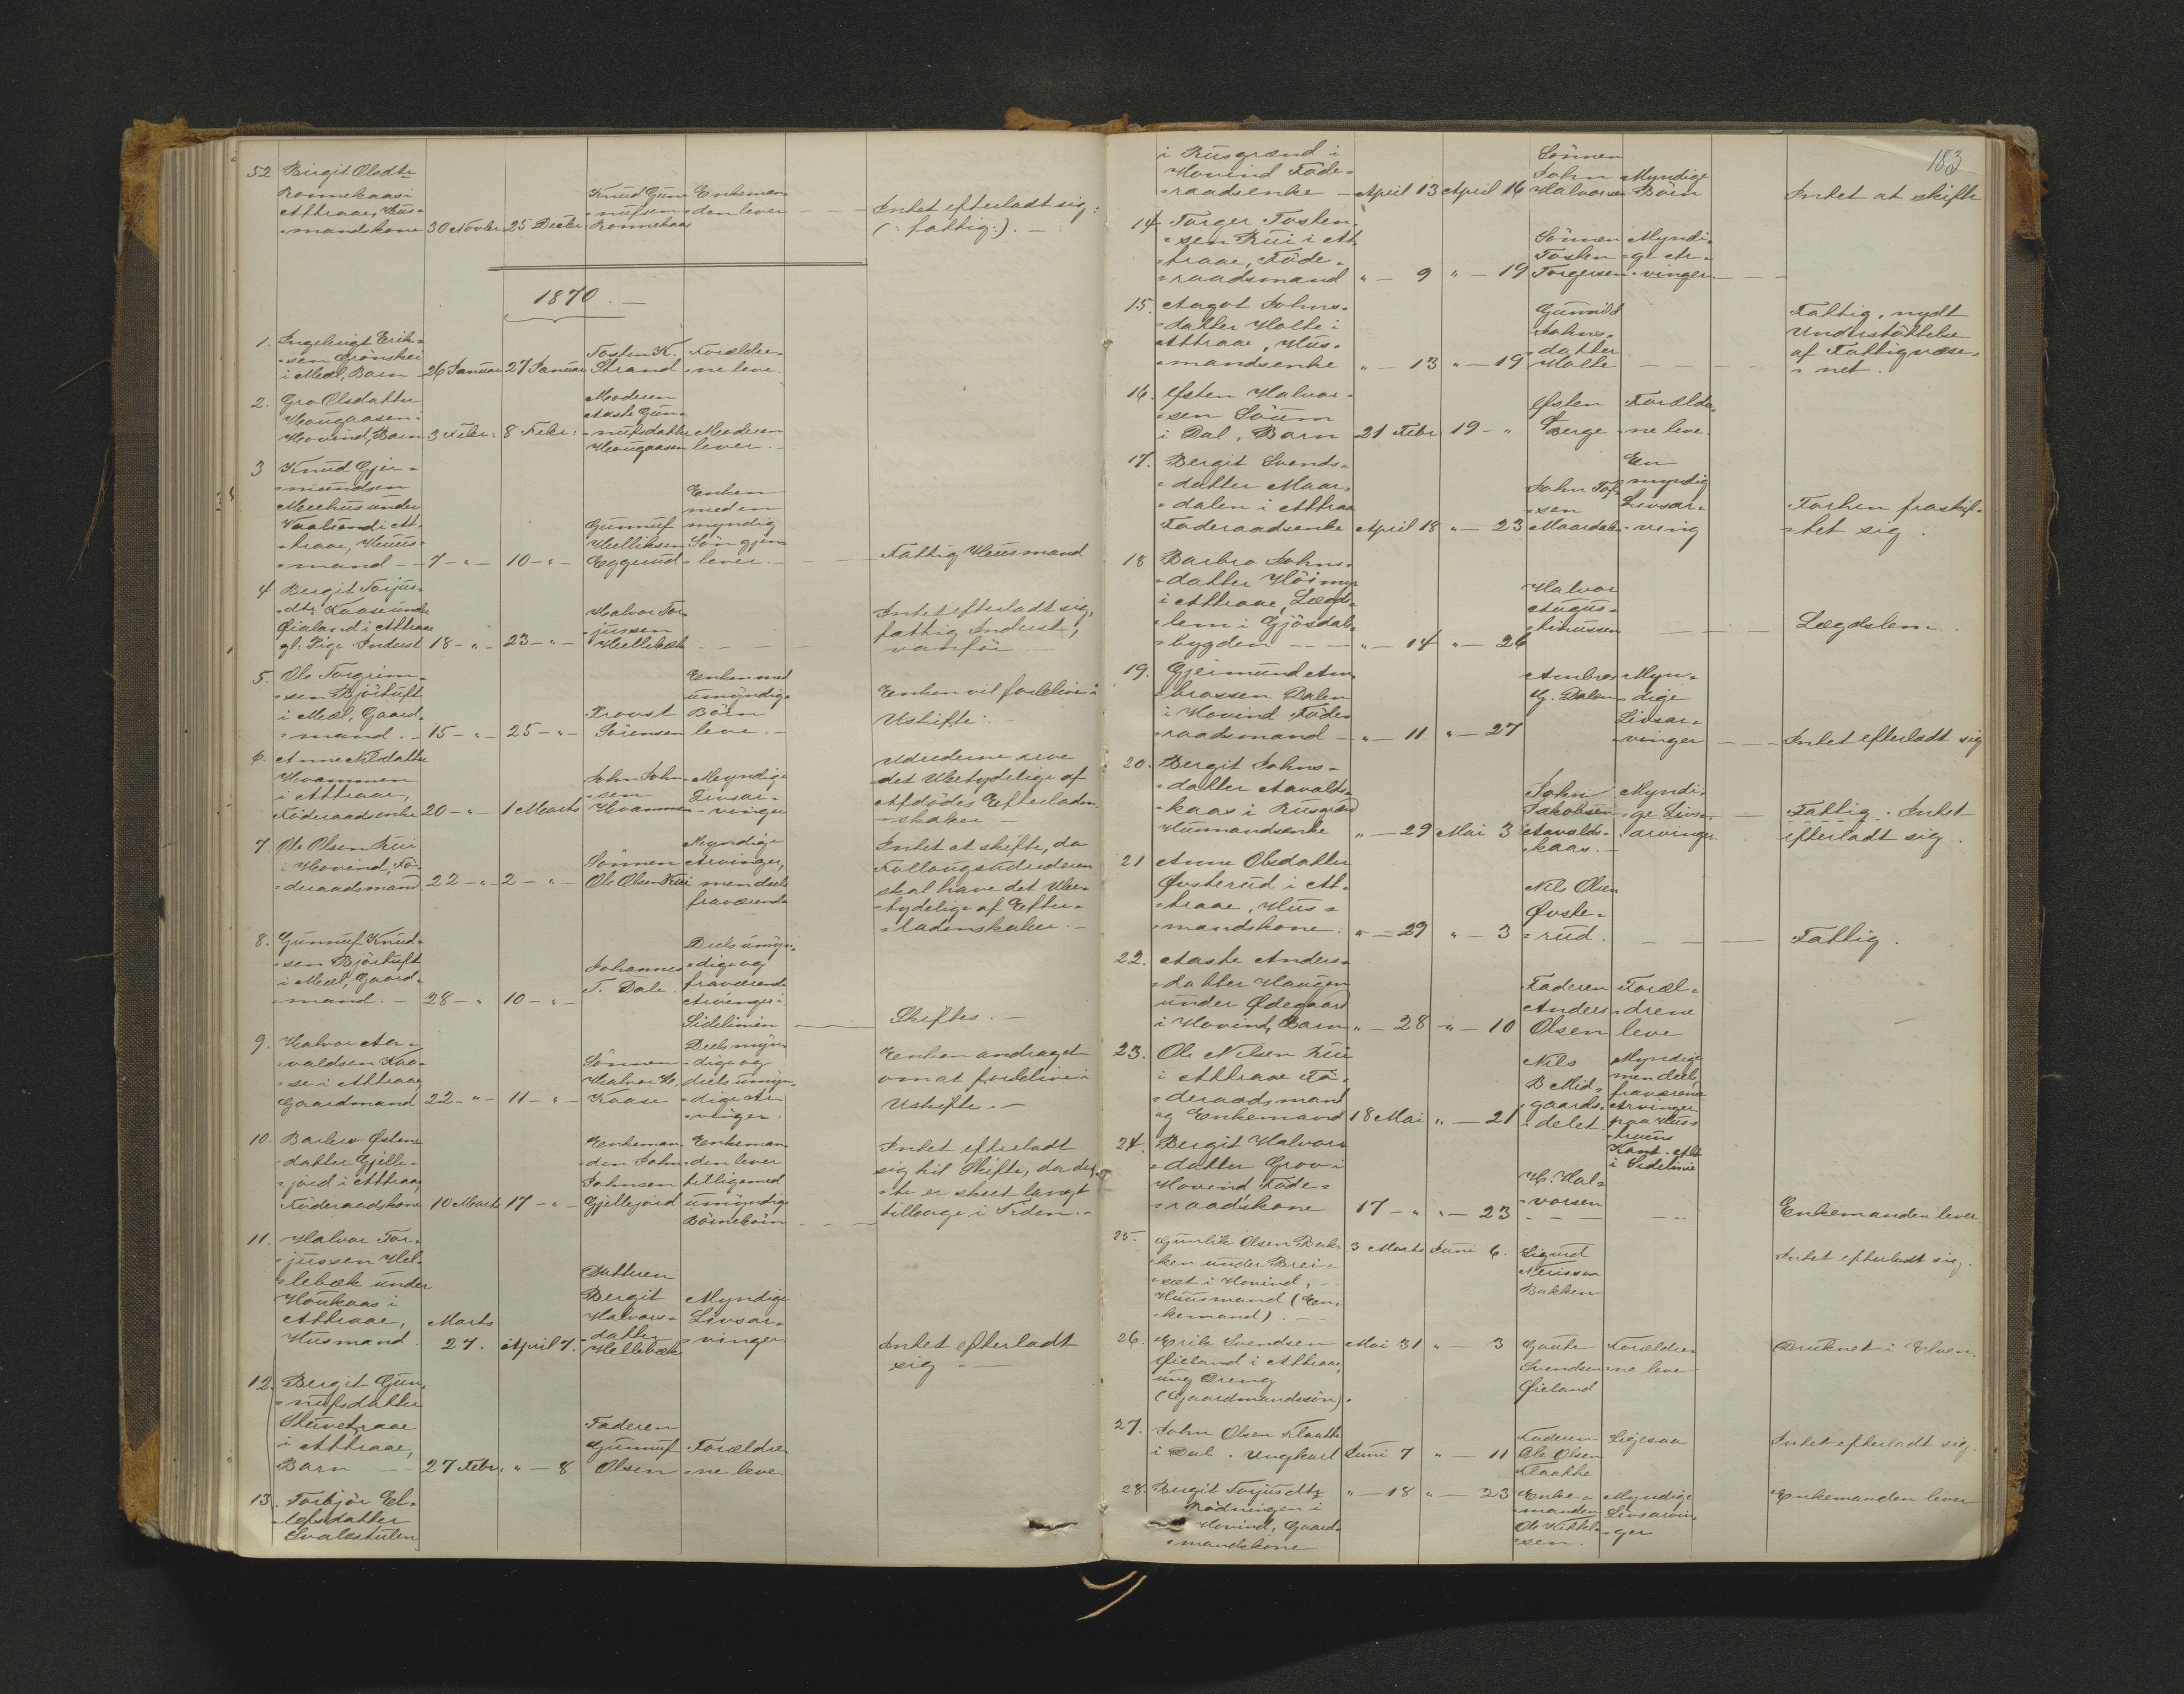 52 Birgit Olsdtr
Ronnekaas i
Attraae, Hus-
mandskone 30 Novbr 25 Decbr
Knud Gun-
nufsen
Ronnekaas
Enkeman-
den lever
Intet efterladt sig
(: fattig :). —
1870. —
1. Ingebrigt Erik-
sen Grønskei
i Mæl, Barn 26 Januar 27 Januar
Tosten K.
Strand
Forældre-
ne leve.
2. Gro Olsdatter
Hougaasen i
Hovind, Barn 3 Febr: 8 Febr:
Moderen
Aaste Gun-
nufsdatter
Hougaasen
Moderen
lever. —
3 Knud Gjer-
mundsen
Meehus under
Vaaland i At-
traae, Huus-
mand — 7 - " - 10 - " -
Gunnuf
Helliksen
Eggerud
Enken
med en
myndig
Søn gjen-
lever. —
Fattig Huusmand
4 Bergit Torjus-
dtr Kaase under
Øieland i Attraae
gl. Pige Inderst 18 - " - 23 - " -
Halvor Tor-
jussen
Hellebæk
Intet efterladt sig,
fattig Inderst,
vanfør —
5. Ole Torgrim-
sen Bjørtuft
i Mæl, Gaard-
mand. — 15 - " - 25 - " -
Provst
Sørensen
Enken med
umyndige
Børn
leve. —
Enken vil forblive i
Uskifte. —
6. Anne Nilsdatter
Hvammen
i Attraae,
Føderaadsenke 20 - " - 1 Marts
John John-
sen
Hvammen
Myndige
Livsar-
vinger
Udrederne arve
det Ubetydelige af
Afdødes Efterladen-
skaber —
7 Ole Olsen Rui
i Hovind, Fø-
deraadsmand 22 - " - 2 - " -
Sønnen
Ole Olsen Rui
Myndige
Arvinger,
men deels
fraværende
Intet at skifte, da
Follaugsudrederen
skal have det Ube-
tydelige af Efter-
ladenskaber. —
8. Gunnuf Knud-
sen Bjørtuft
i Mæl, Gaard-
mand. — 28 - " 10 - " -
Johannes
T. Dale
Deels umyn-
dige og
fraværende
Arvinger i
Sidelinien
Skiftes. —
9. Halvor Aa-
valdsen Kaa-
se i Attraae,
Gaardmand 22 - " - 11 - " -
Sønnen
Halvor H.
Kaase
Deels myn-
dige og
deels umyn-
dige Ar-
vinger.
Enken andraget
om at forblive i
Uskifte. —
10. Barbro Østens-
datter Gjelle-
jord i Attraae,
Føderaadskone 10 Marts 17 - " -
Enkeman-
den John
Johnsen
Gjellejord
Enkeman-
den lever
tilligemed
umyndige
Børnebørn
Intet efterladt
sig til Skifte, da det-
te er skeet langt
tilbage i Tiden. —
11. Halvor Tor-
jussen Hel-
lebæk under
Houkaas i
Attraae,
Husmand
Marts
27. April 7.
Datteren
Bergit
Halvors-
datter
Hellebæk
Myndige
Livsar-
vinger
Intet efterladt
sig —
12. Bergit Gun-
nufsdatter
Stuvetraae
i Attraae,
Barn — 27 Febr. " — 8
Faderen
Gunnuf
Olsen
Forældre-
ne leve.
13. Torbjør El-
lefsdatter
Svalestulen
183
i Rusgrænd i
Hovind Føde-
raadsenke — April 13 April 16
Sønnen
John
Halvorsen
Myndige
Børn
Intet at skifte
14 Torger Tosten-
sen Rui i At-
traae, Føde-
raadsmand " — 9 " — 19
Sønnen
Tosten
Torgersen
Myndi-
ge Ar-
vinger.
15. Aagot Johns-
datter Holte i
Attraae, Hus-
mandsenke " — 13 " — 19
Gunvild
Johns-
datter
Holte
Fattig, nydt
Understøttelse
af Fattigvæse-
net.
16. Østen Halvor-
sen Søum
i Dal, Barn 21 Febr 19 - "
Østen
Berge
Forældre-
ne leve.
17. Bergit Svends-
datter Maar-
dalen i Attraa
Føderaadsenke April 18 " — 23
John
sen
Maardalen
En
myndig
Livsar-
ving
Forhen fraskif-
tet sig.
18 Barbro Johns-
datter Høimyr
i Attraae, Lægds-
lem i Gjøsdal-
bygden — " — 14 " — 26
Halvor
Augus-
tinussen
Lægdslem
19. Gjermund Am-
brossen Dalen
i Hovind Føde-
raadsmand — " — 11 " — 27
Ambros
G. Dalen
Myn-
dige
Livsar-
vinger
Intet efterladt sig
20. Bergit Johns-
datter Aavalds-
kaas i Rusgrænd
Husmandsenke " — 29 Mai 3
John
Jakobsen
Aavalds-
kaas. —
Myndi-
ge Livs-
arvinger
Fattig. Intet
efterladt sig.
21 Anne Olsdatter
Øvsterud i At-
traae, Hus-
mandskone. " — 29 " — 3
Nils Olsen
Øvste-
rud.
Fattig.
22. Aaste Anders-
datter Haugen
under Ødegaard
i Hovind, Barn " — 28 " — 10
Faderen
Anders
Olsen
Foræl-
drene
leve
23. Ole Nilsen Rui
i Attraae Fø-
deraadsmand
og Enkemand 18 Mai " — 21
Nils
B Mid-
gaards-
delet.
Myndige
men deels
fraværende
Arvinger
paa Hus-
truens
Kant. alle
i Sidelinie
24. Bergit Halvors-
datter Grov i
Hovind Føde-
raadskone 17 - " " — 23
H. Hal-
vorsen
Enkemanden lever.
25. Gunlik Olsen Bak-
ken under Brei-
set i Hovind, —
Huusmand (En-
kemand). —
3 Marts Juni 6.
Sigurd
Bakken
Intet efterladt sig.
26. Erik Svendsen
Øieland i Attraae,
ung Dreng
(Gaardmandssøn).
Mai 31 " — 3
Gaute
Svendsen
Øieland
Forældre-
ne leve
Druknet i Elven.
27. John Olsen Flaatte
i Dal. Ungkarl Juni 7 " — 11
Faderen
Ole Olsen
Flaatte
Ligesaa
Intet efterladt sig.
28. Bergit Torjusdtr
Rødningen i
Hovind, Gaard-
mandskone
" — 18 " — 23
Enke-
manden
Ole Kittel-
sen.
Myndige
Livsarvin-
ger
Enkemanden lever